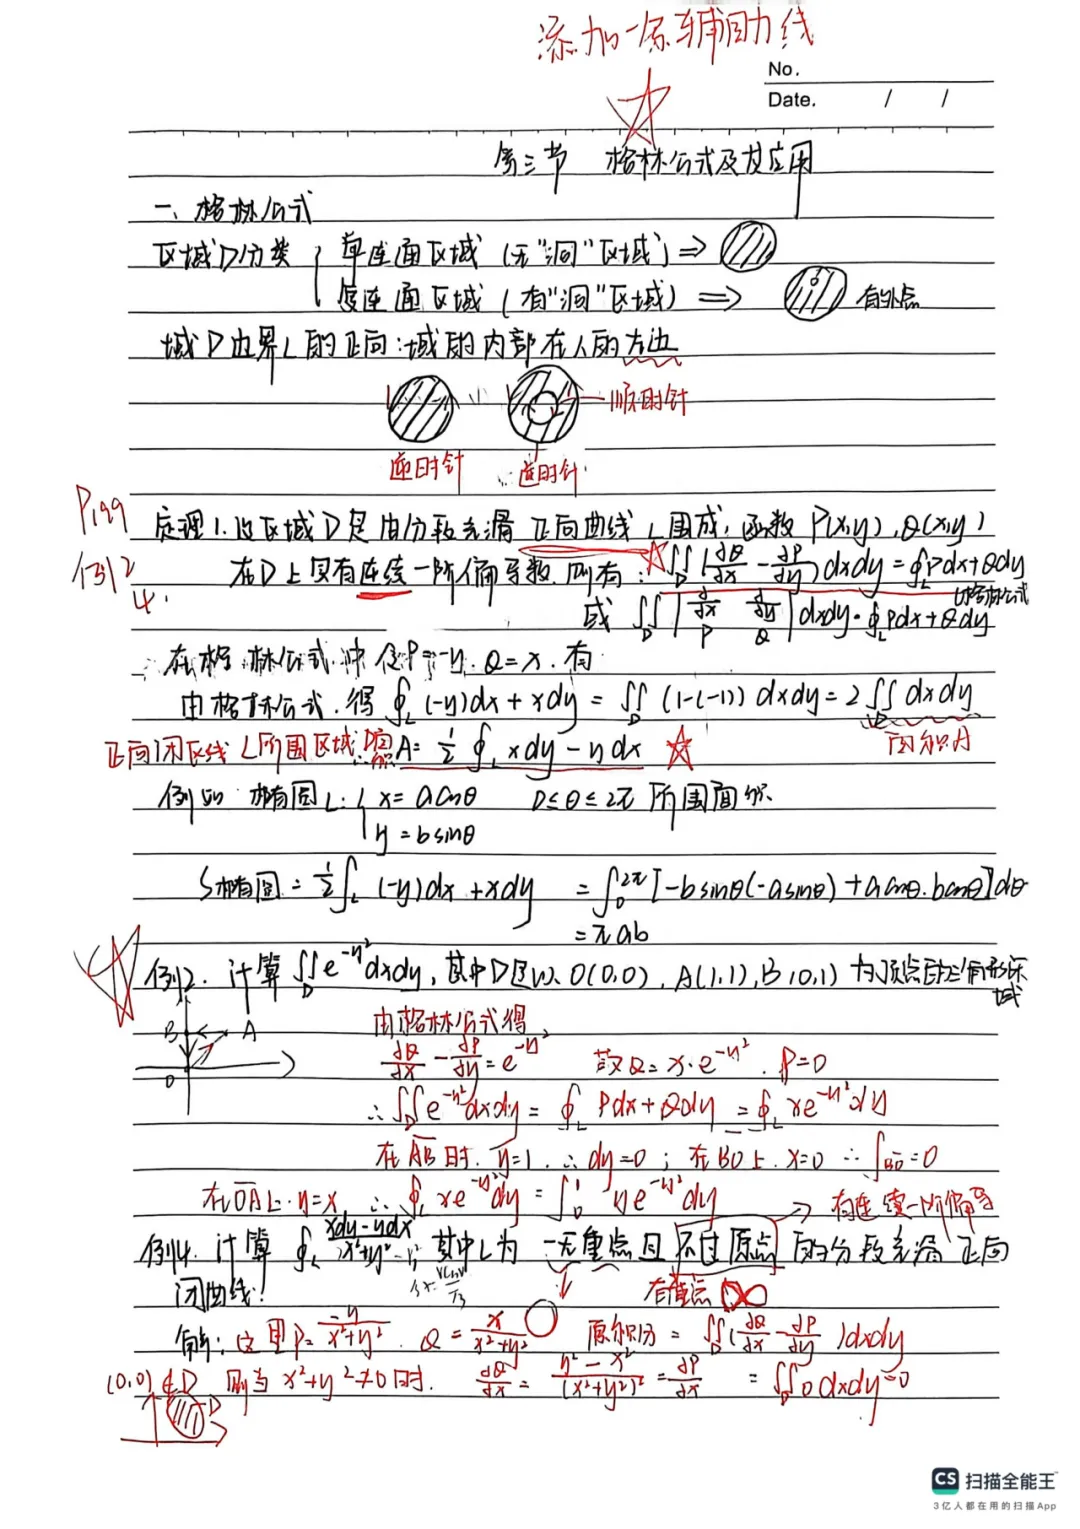 添加一条辅助线
No.
Date. / /
第三节 格林公式及其应用
一、格林公式
区域D分类 { 单连通区域 (无"洞"区域) ⇒
复连通区域 (有"洞"区域) ⇒ 有的点
域D边界L的正向:域的内部在人的左边
顺时针
逆时针 逆时针
P199 定理1.设区域D是由分段光滑正向曲线L围成,函数P(x,y),Q(x,y)
例2 在D上具有连续一阶偏导数,则有: ∬_D(∂Q/∂x - ∂P/∂y)dxdy=∮_L Pdx+Qdy
4. 格林公式
或 ∬_D |∂/∂x ∂/∂y; P Q| dxdy=∮_L Pdx+Qdy
在格林公式中 P=-y. Q=x. 有
由格林公式.得 ∮_L (-y)dx + xdy = ∬_D (1-(-1)) dxdy = 2∬_D dxdy
面积A
正向闭区线L所围区域D面积 A= 1/2 ∮_L xdy-ydx
例 椭圆L: { x=acosθ 0≤θ≤2π 所围面积.
y=bsinθ
S椭圆 = 1/2∫_L (-y)dx+xdy = ∫_0^{2π}[-bsinθ(-asinθ)+acosθ.bcosθ]dθ
=πab
例2. 计算 ∬_D e^{-y²}dxdy, 其中D是以O(0,0), A(1,1), B(0,1) 为顶点的三角形区域
B A
O
由格林公式得
∂Q/∂x - ∂P/∂y = e^{-y²} 故Q=x·e^{-y²}. P=0
∴∬_D e^{-y²}dxdy = ∮_L Pdx+Qdy = ∮_L xe^{-y²}dy
在AB时. y=1. ∴dy=0; 在BO上. x=0 ∴∫_{BO}=0
在OA上. y=x ∴∮_L xe^{-y²}dy = ∫_0^1 ye^{-y²}dy 有连续一阶偏导
例4. 计算 ∮_L (xdy-ydx)/(x²+y²), 其中L为一无重点且不过原点的分段光滑正向
闭曲线! 有重点
解: 这里P=-y/(x²+y²). Q=x/(x²+y²) 原积分 = ∬_D(∂Q/∂x - ∂P/∂y)dxdy
(0,0)∉D 则当x²+y²≠0时. ∂Q/∂x = (y²-x²)/(x²+y²)² = ∂P/∂x = ∬_D 0dxdy=0
D
CS 扫描全能王
3亿人都在用的扫描App